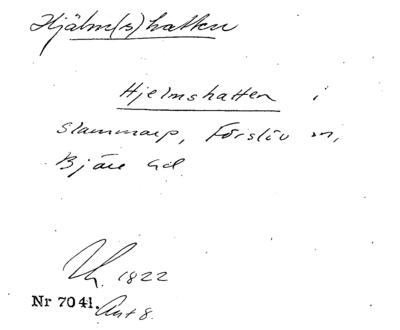 Hjälm(s)hatten
Hjelmshatten i
Slammarp, Förslöv sn,
Bjäre hd
1822
Nr 7041. Ant 8.